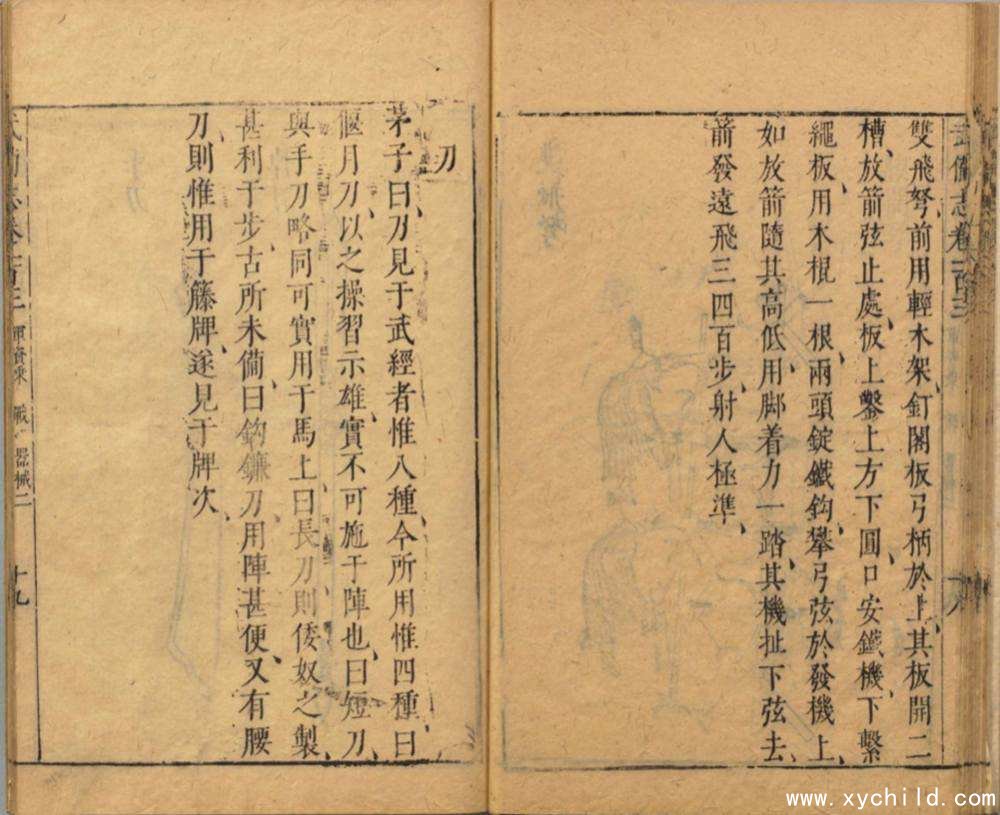 武備志卷一百三
十八
雙飛弩前用輕木架釘閣板弓柄於上其板開二
槽放箭弦止處板上鑿上方下圓口安鐵機下繫
繩板用木棍一根兩頭錠鐵鈎攀弓弦於發機上
如放箭隨其高低用脚着力一踏其機扯下弦去
箭發遠飛三四百步射人極準
刀
茅子曰刀見于武經者惟八種今所用惟四種曰
偃月刀以之操習示雄實不可施于陣也曰短刀
與手刀略同可實用于馬上曰長刀則倭奴之製
甚利于步古所未備曰鈎鐮刀用陣甚便又有腰
刀則惟用于籐牌遂見于牌次
武備志卷一百三 軍資乘 戰 器械二
十九
www.xychild.com